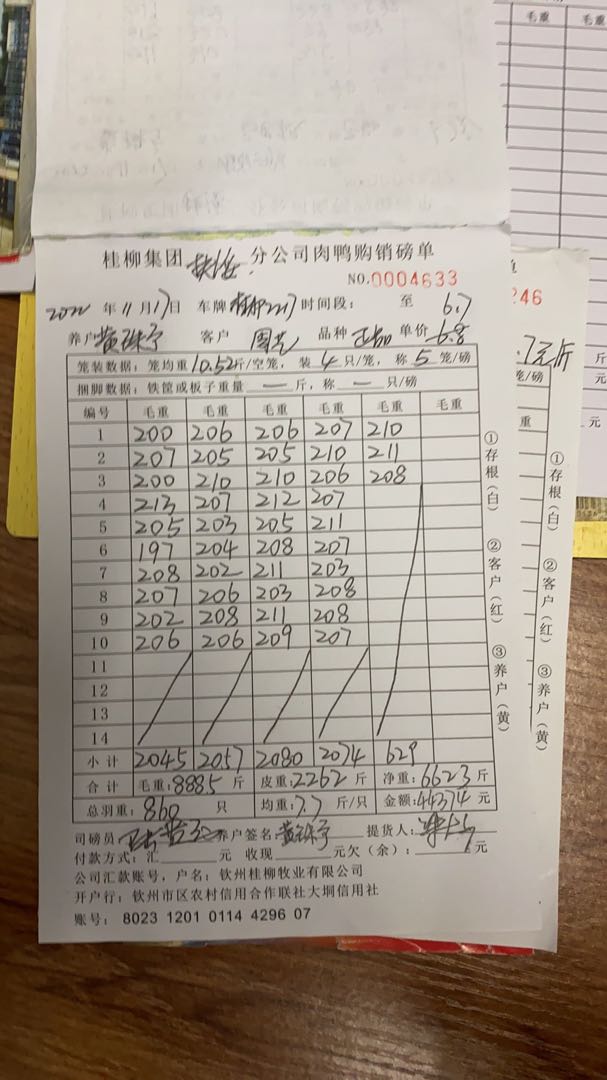 毛重
毛重
桂柳集团 分公司肉鸭购销磅单
NO.0004633
2022 年 11 月 17 日 车牌 桂 2217 时间段: 至 6.7
养户 黄 宁 客户 周 品种 单价 6.8
笼装数据: 笼均重 10.52 斤/空笼, 装 4 只/笼, 称 5 笼/磅
捆脚数据: 铁筐或板子重量 — 斤, 称 — 只/磅
编号 毛重 毛重 毛重 毛重 毛重 毛重
1 200 206 206 207 210
2 207 205 205 210 211
3 200 210 210 206 208
4 213 207 212 207
5 205 203 205 211
6 197 204 208 207
7 208 202 211 203
8 207 206 203 208
9 202 208 211 208
10 206 206 209 207
11
12
13
14
小计 2045 2057 2080 2074 629
合计 毛重: 8885 斤 皮重: 2262 斤 净重: 6623 斤
总羽重: 860 只 均重: 7.7 斤/只 金额: 44374 元
司磅员 养户签名: 黄 宁 提货人:
付款方式: 汇 元 收现 元欠(余): 元
公司汇款账号, 户名: 钦州桂柳牧业有限公司
开户行: 钦州市区农村信用合作联社大垌信用社
账号: 8023 1201 0114 4296 07
①存根(白)
②客户(红)
③养户(黄)
单
246
元/斤
笼/磅
元
重
①存根(白)
②客户(红)
③养户(黄)